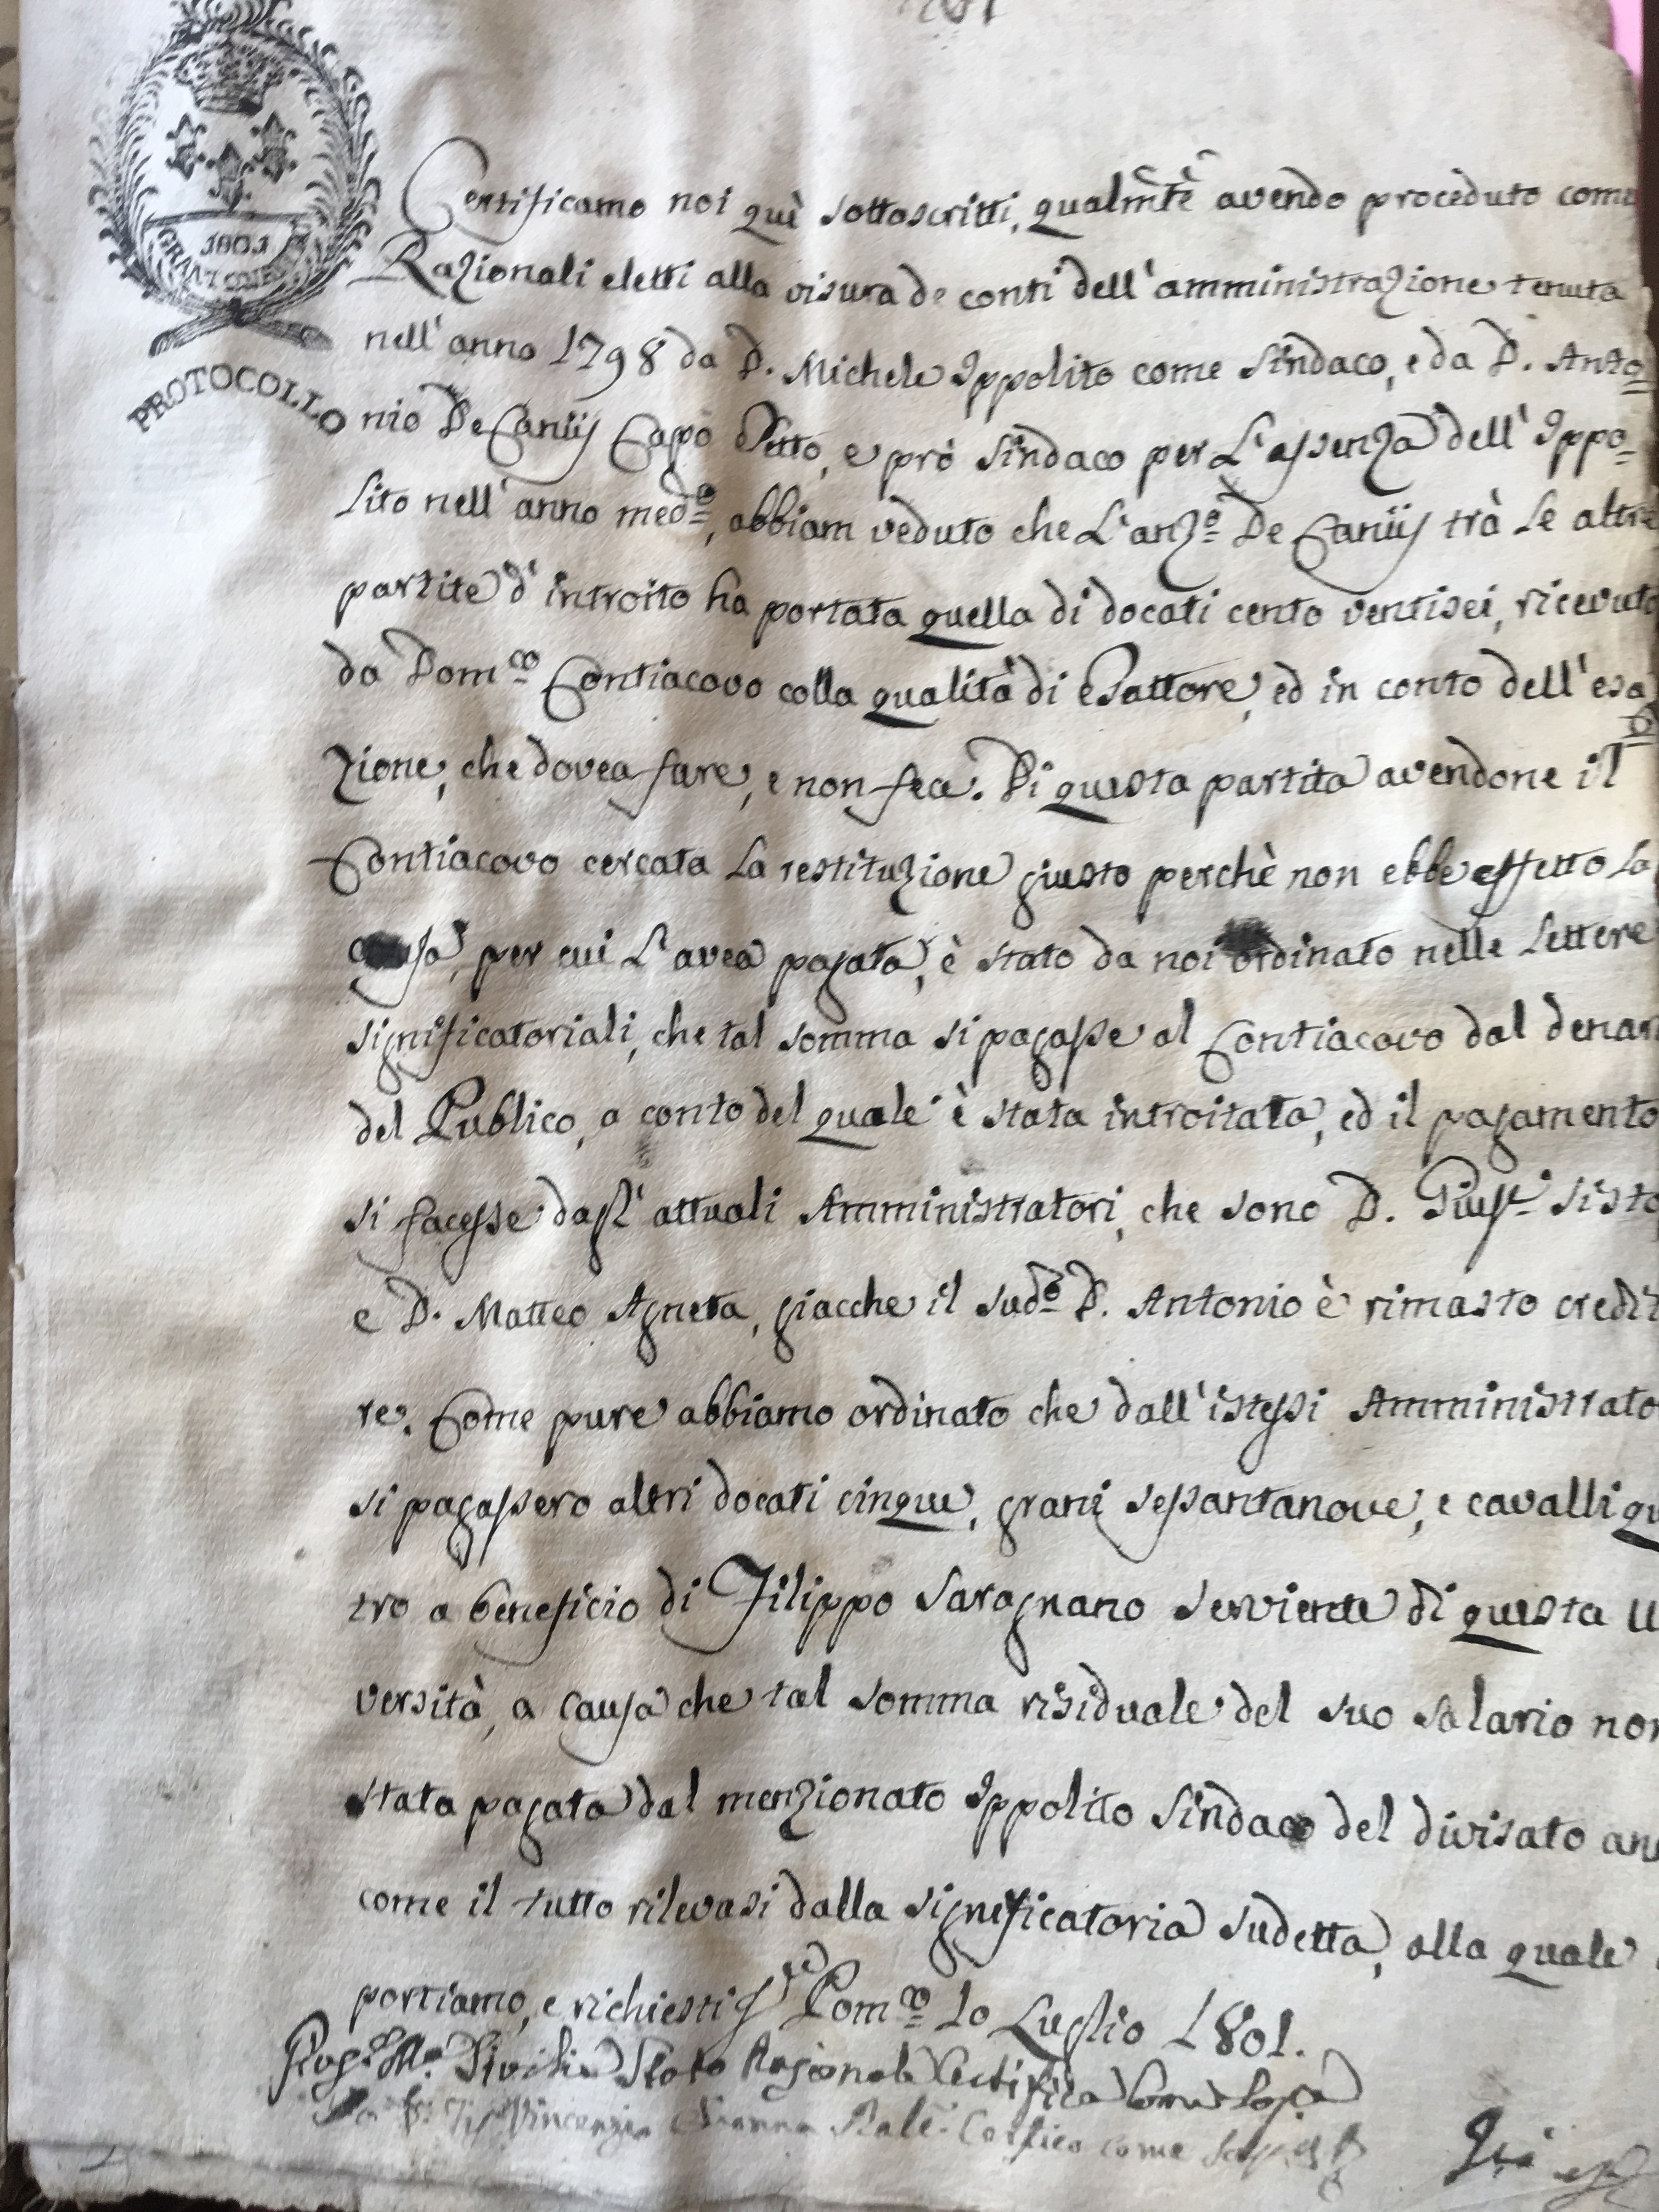 1801
GRANI
PROTOCOLLO
Certificamo noi quì sottoscritti, qualm̃te avendo proceduto come
Razionali eletti alla visura de conti dell'amministrazione tenuta
nell'anno 1798 da D. Michele Ippolito come Sindaco, e da D. Anto=
nio De Canüs Capo Eletto, e prò Sindaco per L'assenza dell'Ippo=
lito nell'anno med.º, abbiam veduto che L'anz.º De Canüs trà le altre
partite d'introito ha portata quella di docati cento ventisei, ricevuta
da Dom.co Contiacovo colla qualità di Esattore, ed in conto dell'esa
zione, che dovea fare, e non fece. Di questa partita avendone il
Contiacovo cercata la restituzione giusto perchè non ebbe effetto la
causa, per cui L'avea pagata, è stato da noi ordinato nelle lettere
significatoriali, che tal somma si pagasse al Contiacovo dal denar
del Publico, a conto del quale è stata introitata, ed il pagamento
si facesse dagl'attuali Amministratori, che sono D. Gius.e Sisto
e D. Matteo Agneta, giacche il sud.º D. Antonio è rimasto credit
re. Come pure abbiamo ordinato che dall'istessi Amministrato
si pagassero altri docati cinque, grani sessantanove, e cavalli qu
tro a beneficio di Filippo Saragnano serviente di questa U
versità, a causa che tal somma risiduale del suo salario non
stata pagata dal menzionato Ippolito Sindaco del divisato an
come il tutto rilevasi dalla significatoria sudetta, alla quale
portiamo, e richiesti Dom.co 10 Luglio 1801.
Razionale Certifica come sopra
Vincenzo Certifico come